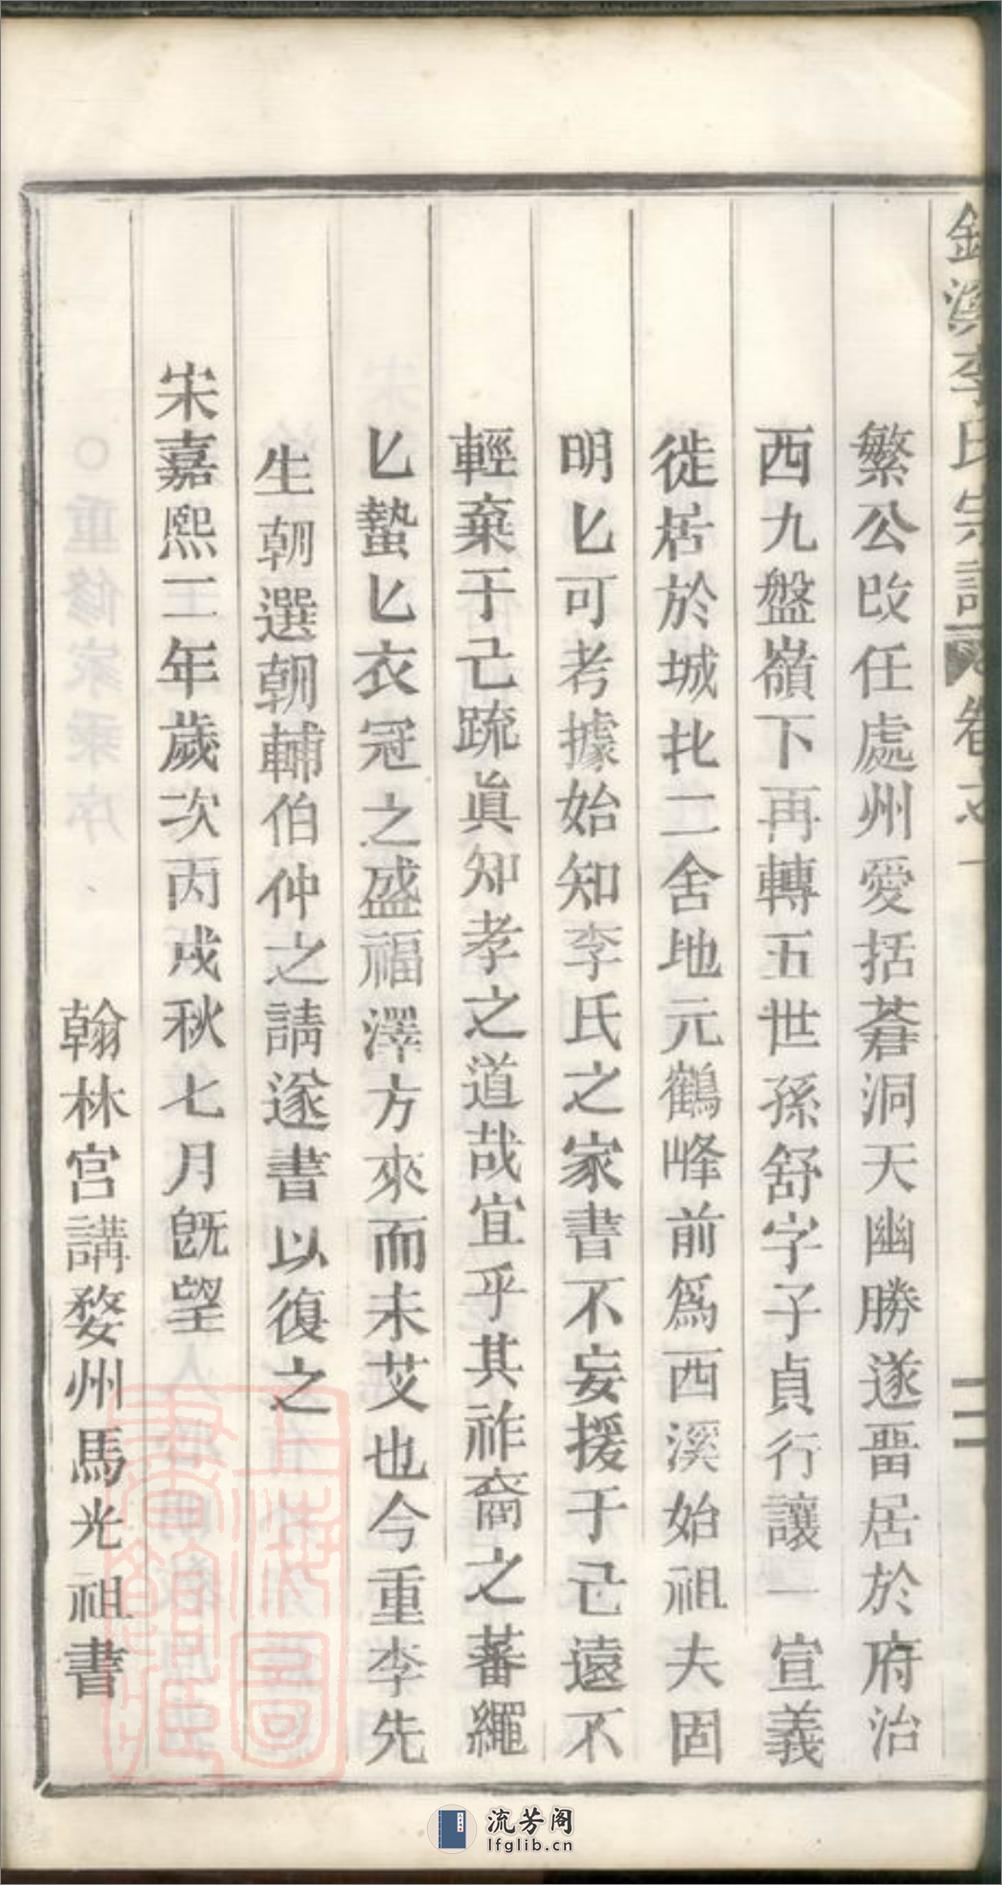 李氏宗譜 卷之一 二
繁公改任處州愛括蒼洞天幽勝遂畱居於府治
西九盤嶺下再轉五世孫舒字子貞行讓一宣義
徙居於城北二舍地元鶴峰前爲西溪始祖夫固
明匕可考據始知李氏之家書不妄援于己遠不
輕棄于己疏眞知孝之道哉宜乎其祚裔之蕃繩
匕蟄匕衣冠之盛福澤方來而未艾也今重李先
生朝選朝輔伯仲之請遂書以復之
宋嘉熙二年歲次丙戌秋七月旣望
翰林宮講婺州馬光祖書
上海圖書館藏
流芳阁
lfglib.cn